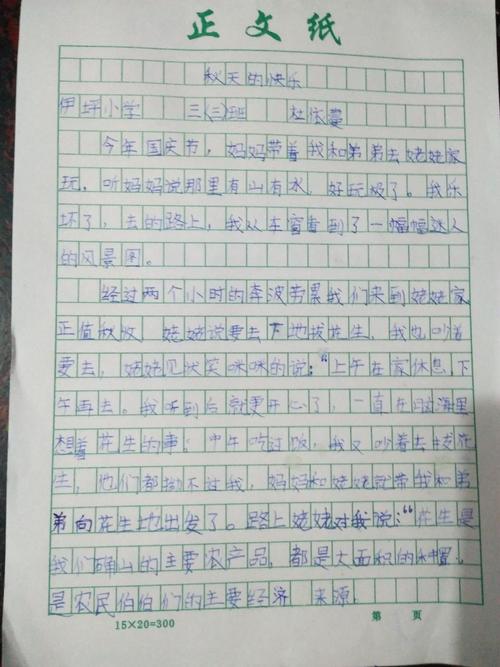 正文纸
秋天的快乐
伊坪小学 三(三)班 杜依蔓
今年国庆节，妈妈带着我和弟弟去姥姥家
玩。听妈妈说那里有山有水，好玩极了。我乐
坏了，去的路上，我从车窗看到了一幅幅迷人
的风景图。
经过两个小时的奔波劳累我们来到姥姥家
正值秋收 姥姥说要去下地拔花生，我也吵着
要去，姥姥见状笑咪咪的说："上午在家休息下
午再去。我听到后就更开心了，一直在脑海里
想着花生的事；中午吃过饭，我又吵着去拔花
生，他们都拗不过我，妈妈和姥姥就带我和弟
弟向花生地出发了。路上姥姥对我说："花生是
我们确山的主要农产品，都是大面积的种
是农民伯伯们的主要经济 来源
15×20=300 第 页